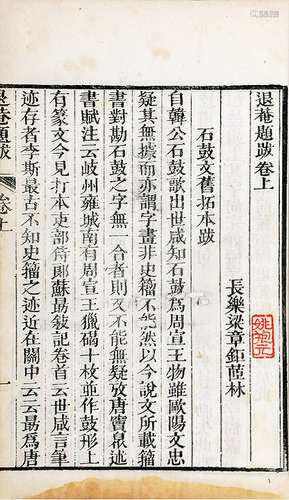 退菴題跋卷上
長樂梁章鉅茝林
石鼓文舊拓本跋
自韓公石鼓歌出世咸知石鼓爲周宣王物雖歐陽文忠
疑其無據而亦謂字畫非史籒不能然以今說文所載籒
書對勘石鼓之字無一合者則又不能無疑攷唐竇臮述
書賦注云岐州雍城南有周宣王獵碣十枚並作鼓形上
有篆文今見打本吏部侍郎蘇勗敍記卷首云世咸言筆
迹存者李斯最古不知史籒之迹近在關中云云勗爲唐
退菴題跋
卷上
一